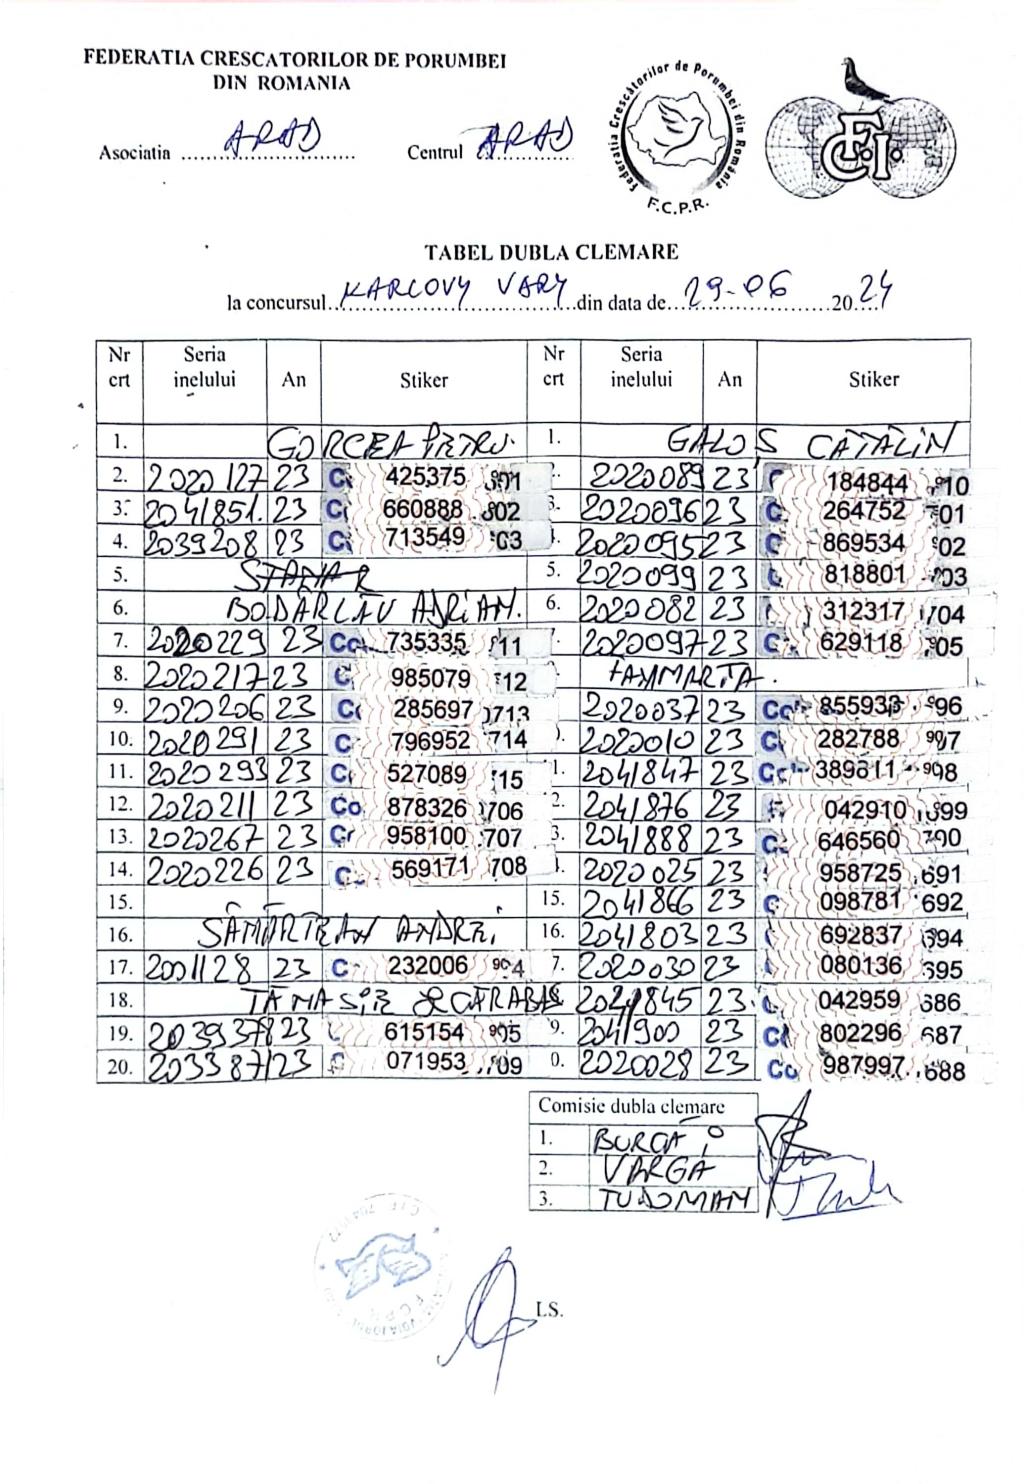 FEDERATIA CRESCATORILOR DE PORUMBEI
DIN ROMANIA
Asociatia ARAD Centrul ARAD
Federatia Crescătorilor de Porumbei din România
F.C.P.R.
F.C.I.
TABEL DUBLA CLEMARE
la concursul KARLOVY VARY din data de 29-06 2024
Nr crt Seria inelului An Stiker Nr crt Seria inelului An Stiker
1. GORCEA PETRU 1. GALOȘ CĂTĂLIN
2. 2020127 23 425375 2020089 23 184844
3. 2041851 23 660888 802 3. 2020096 23 264752 701
4. 2039208 23 713549 2020095 23 869534 902
5. 5. 2020099 23 818801 703
6. BODÂRLĂU ADRIAN. 6. 2020082 23 312317 704
7. 2020229 23 735335 2020097 23 629118
8. 2020217 23 985079 TAMMARTA.
9. 2020206 23 285697 713 2020037 23
10. 2020291 23 796952 714 2020010 23 282788
11. 2020293 23 527089 2041847 23
12. 2020211 23 878326 706 2041876 23 042910
13. 2020267 23 958100 707 3. 2041888 23 646560
14. 2020226 23 569171 708 2020025 23 958725 691
15. 15. 2041866 23 098781 692
16. SÂMĂRTEAN ANDREI 16. 2041803 23 692837 694
17. 2001128 23 232006 904 7. 2020030 23 080136 695
18. 2041845 23 042959 686
19. 2039378 23 615154 905 9. 2041900 23 802296 687
20. 2033387 23 071953 0. 2020028 23 987997 688
Comisie dubla clemare
1.
2. VARGA
3. TUDOMAN
LS.